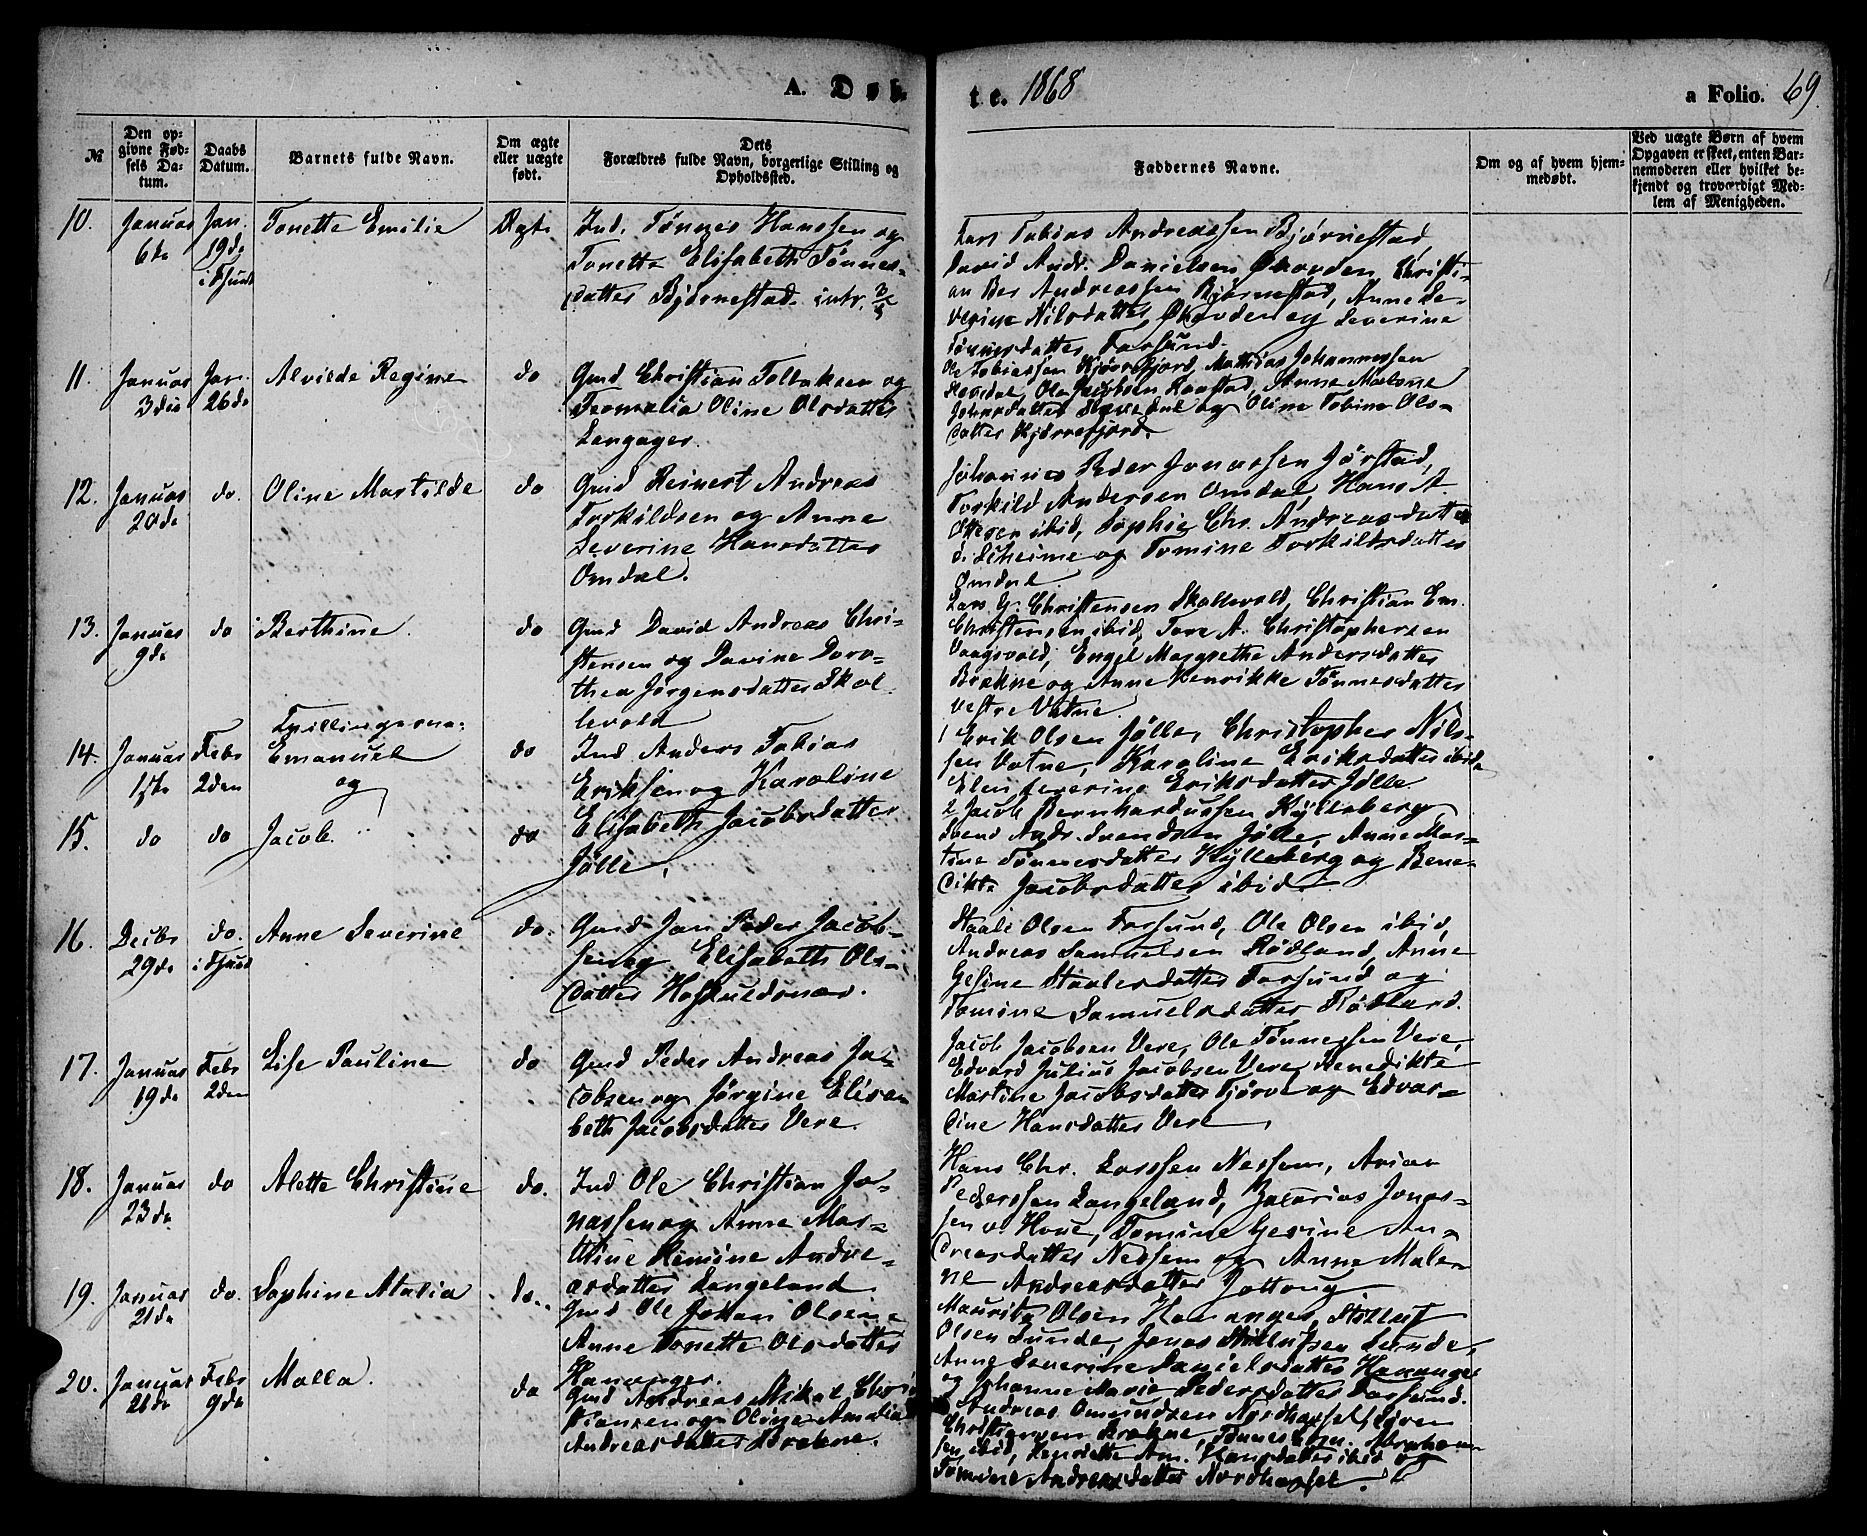 A. Døb-
te. 1868
a Folio. 69.
№
Den op-
givne Fød-
sels Da-
tum.
Daabs
Datum.
Barnets fulde Navn.
Om ægte
eller uægte
født.
Dets
Forældres fulde Navn, borgerlige Stilling og
Opholdssted.
Faddernes Navne.
Om og af hvem hjem-
medøbt.
Ved uægte Børn af hvem
Opgaven er skeet, enten Bar-
nemoderen eller hvilket be-
kjendt og troværdigt Med-
lem af Menigheden.
10.
Januar
6te
Jan.
19de
Tonette Emilie
Ægte
Ind. Tønnes Hanssen og
Tonette Elisabeth Tønnes-
datter Bjørnestad. intr.
Lars Tobias Andreassen Bjørnestad,
David Andr. Danielsen Christi-
an Ber Andreassen Bjørnestad, Anne Se-
verine Nilsdatter og Severine
Tønnesdatter Farsund.
11.
Januar
3die
Jan.
26de
Alvilde Regine
do
Gmd Christian Tollaksen og
Oline Olsdatter
Langager.
Ole Tobiassen Kjørrefjord, Mathias Johannessen
Ole Jacobsen Anne Malene
og Oline Tobine Ols-
datter Kjørrefjord.
12.
Januar
20de
do.
Oline Martilde
do
Gmd Reinert Andreas
Torkildsen og Anne
Severine Hansdatter
Omdal.
Johannes Peder Jonassen Jørstad,
Torkild Andersen Omdal, Hans A
ibid, Sophie Chr. Andreasdatter
og Tomine Torkildsdatter
Omdal
13.
Januar
9de
do
Berthine.
do
Gmd David Andreas Chri-
stensen og Davine Doro-
thea Jørgensdatter Skol-
levold
Lars G. Christensen Skollevold, Christian Em.
Christensen ibid, Tore A. Christophersen
Vaagsvold, Engel Margrethe Andersdatter
Brekne og Anne Henrikke Tønnesdatter
vestre Vatne.
14.
Januar
Febr
2den
Tvillingerne:
Emanuel
og
do
Ind Anders Tobias
Eriksen og Karoline
Elisabeth Jacobsdatter
Jølle.
1 Erik Olsen Jølle, Christopher Nils-
sen Vatne, Karoline Eriksdatter ibid,
Elen Severine Eriksdatter Jølle.
15.
do
do
Jacob.
do
2, Jacob Bernhardussen Kylleberg
Svend Andr. Svendsen Jølle, Anne Mar-
tine Tønnesdatter Kylleberg og Bene-
dikte Jacobsdatter ibid
16.
Decbr
29de
do.
Anne Severine
do.
Gmd Jan Peder Jacob-
sen og Elisabeth Ols-
datter
Staale Olsen Farsund, Ole Olsen ibid,
Andreas Samuelsen Rødland, Anne
Gesine Staalesdatter Farsund og
Tomine Samuelsdatter Rødland.
17.
Januar
19de
Febr
2den
Lise Pauline
do
Gmd Peder Andreas Ja-
cobsen og Jørgine Elisa-
beth Jacobsdatter Vere.
Jacob Jacobsen Vere, Ole Tønnessen Vere,
Edvard Julius Jacobsen Vere, Benedikte
Martine Jacobsdatter Tjørve og Edvar-
dine Hansdatter Vere
18.
Januar
23de
do
Alette Christine
do.
Ind Ole Christian Jo-
nassen og Anne Mar-
Andre-
asdatter Langeland
Hans Chr. Larssen Nessem, Arian
Pederssen Langeland, Zacarias Jonas-
sen Tomine Gesine An-
dreasdatter Nessem og Anne Male-
ne Andreasdatter
19.
Januar
21de
do.
Sophine Atalia
do.
Gmd Ole Johan Olsen
Anne Tonette Olsdatter
Hananger.
Mauritz Olsen Hananger,
Olsen Sunde, Jonas Sunde,
Anne Severine Danielsdatter Hananger
og Johanne Marie Pedersdatter Farsund.
20.
Januar
21de
Febr
9de
Malla.
do
Gmd Andreas Mikal Chri-
stensen og Oline Amalia
Andreasdatter Brekne.
Andreas Omundsen Nordhassel, Søren
Christiansen Brekne, Tønnes
sen ibid, Henriette Am. Hansdatter ibid og
Tomine Andreasdatter Nordhassel.